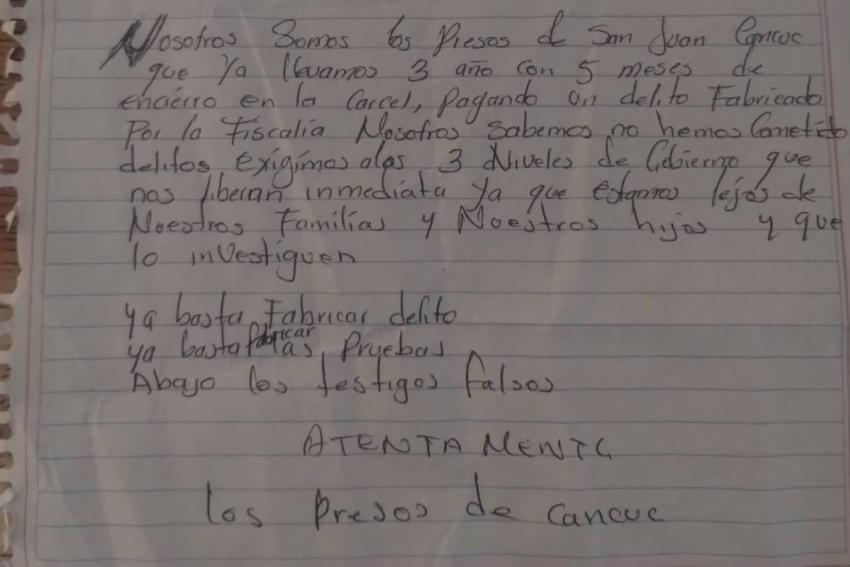 Nosotros Somos los Presos de San Juan Cancuc
que Ya llevamos 3 año con 5 meses de
encierro en la Carcel, Pagando un delito Fabricado
Por la Fiscalia Nosotros Sabemos no hemos Cometido
delitos Exigimos alos 3 Niveles de Gobierno que
nos liberan inmediata Ya que estamos lejos de
Nuestros Familias y Nuestros hijos y que
lo investiguen
Ya basta Fabricar delito
ya basta fabricar las Pruebas
Abajo los testigos falsos
ATENTA MENTE
los Presos de Cancuc